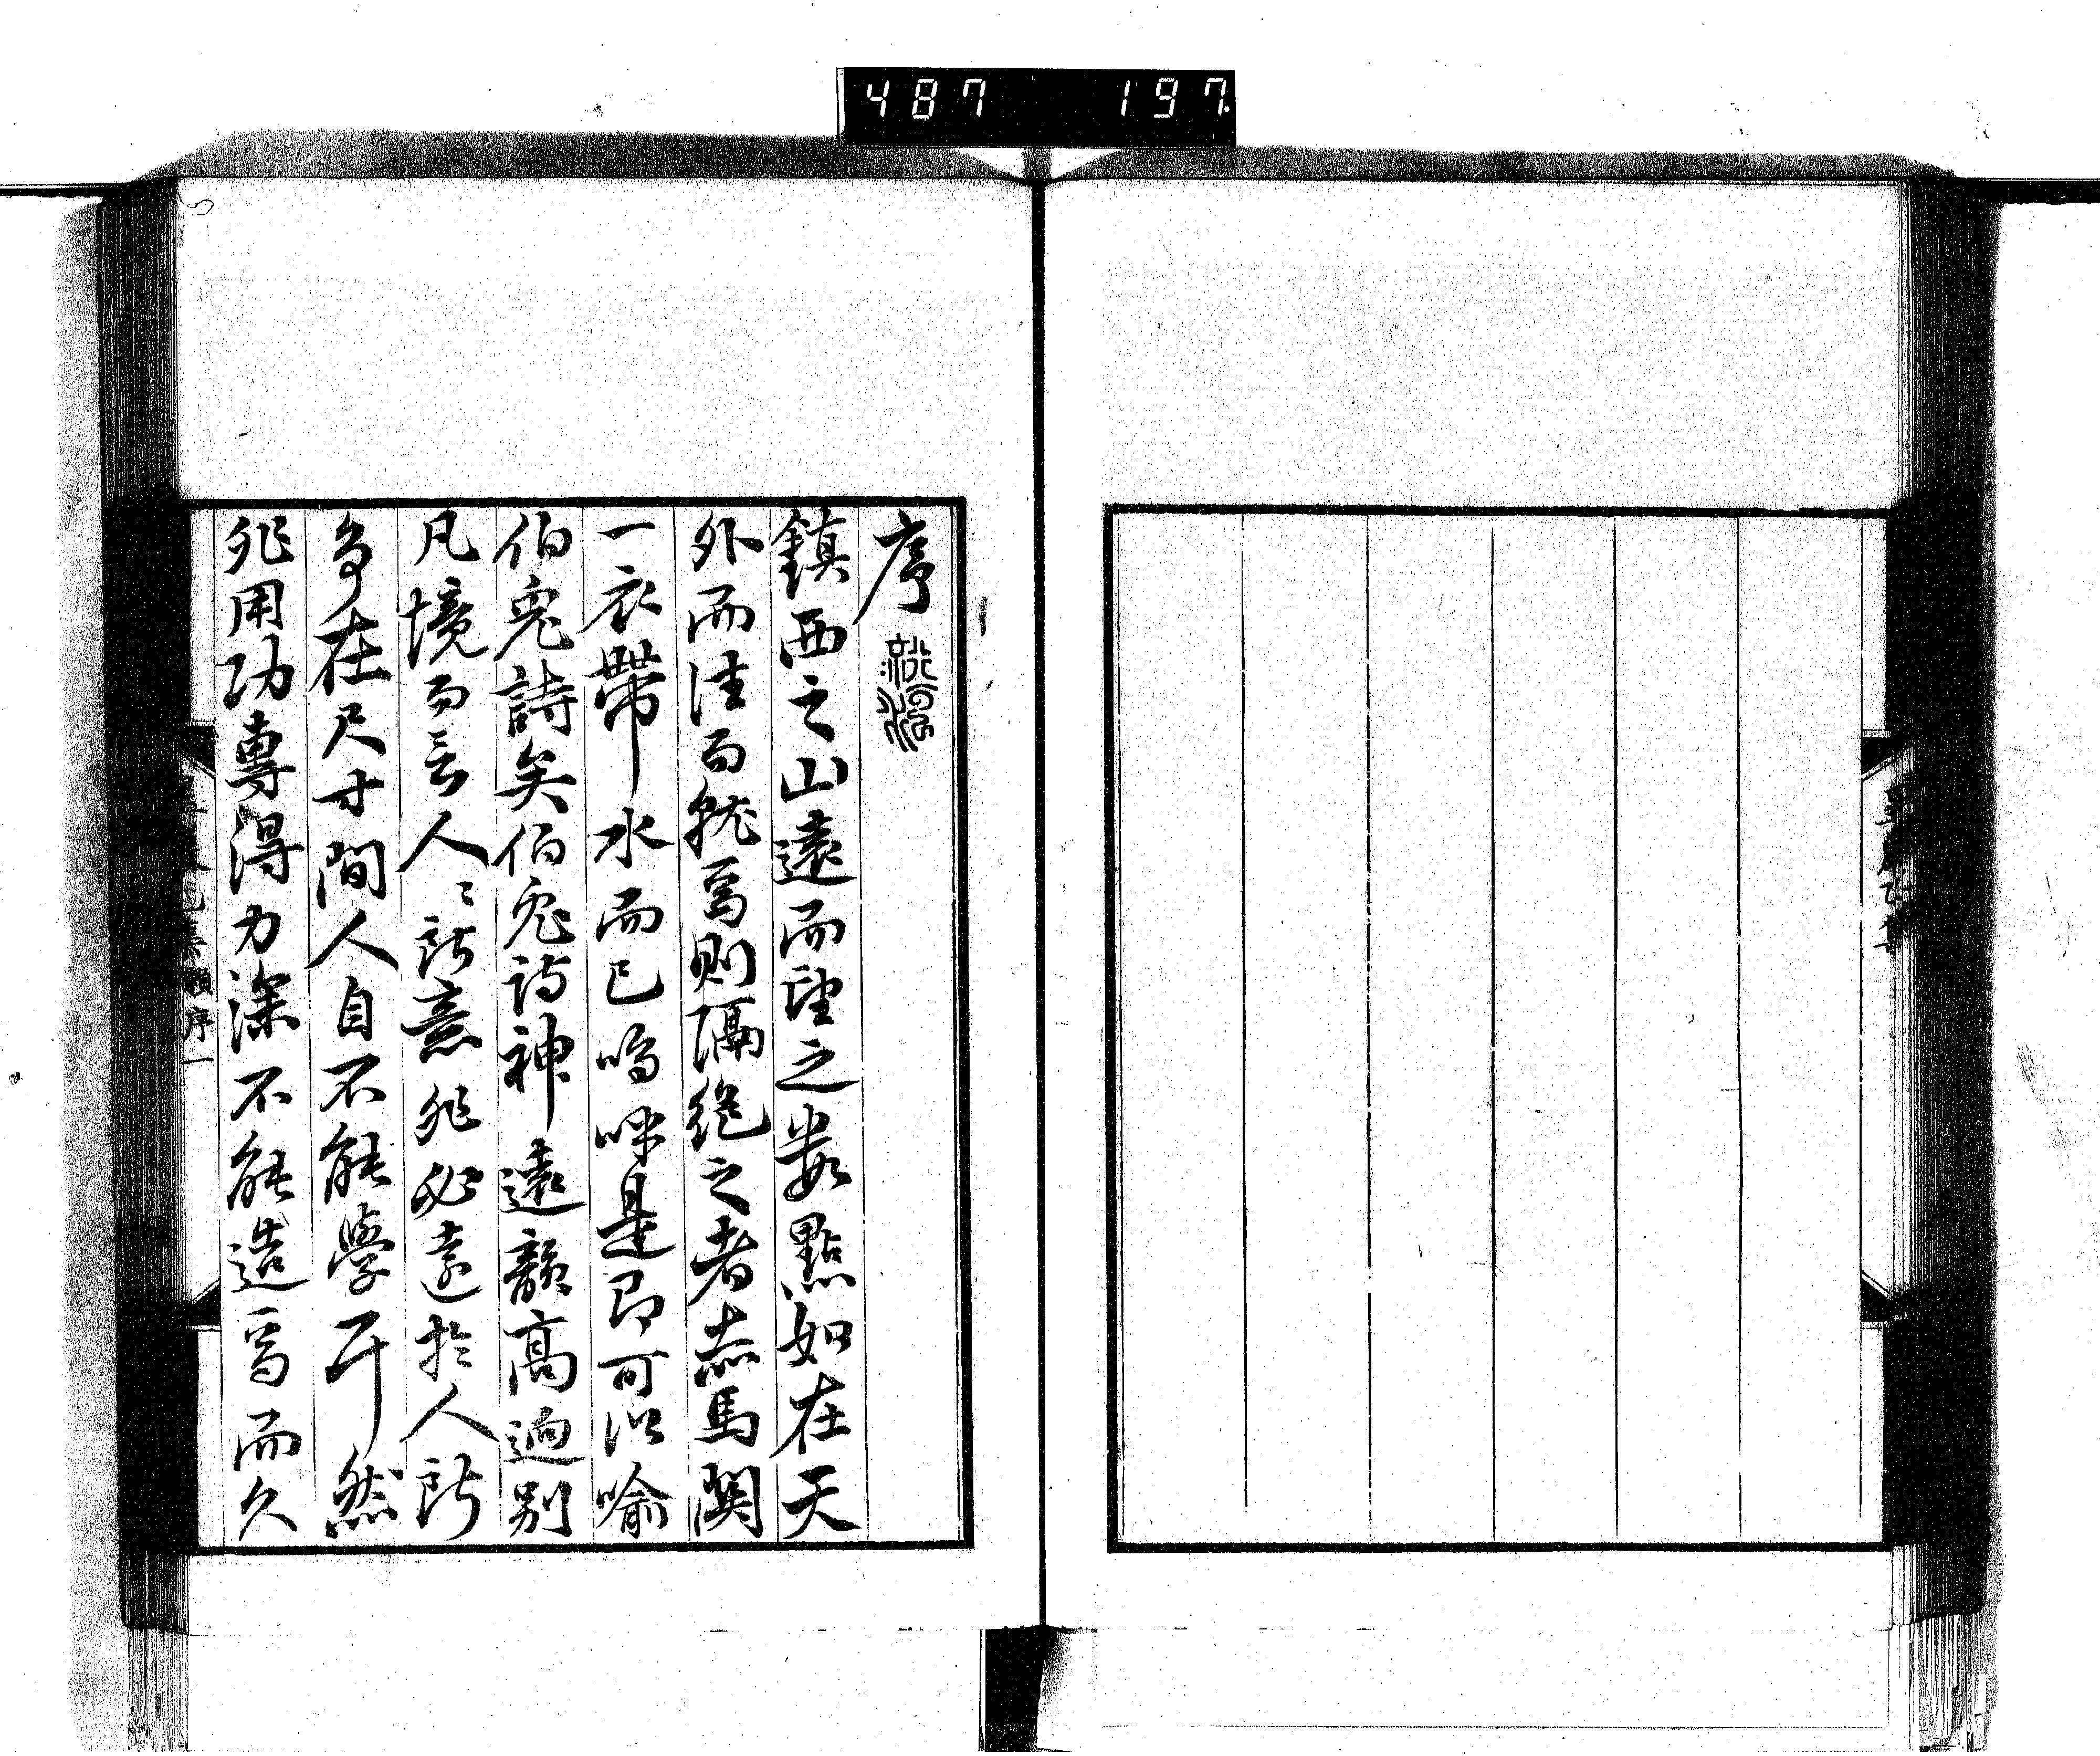 487 197
序
鎮西之山遠而望之數點如在天
外而往而就焉則隔絕之者赤馬關
一衣帶水而已嗚呼是即可以喻
伯兎詩矣伯兎詩神遠韻高迥別
凡境而言人〻所意非必遠於人所
爭在尺寸間人自不能學耳然
非用功專得力深不能造焉而久
序一